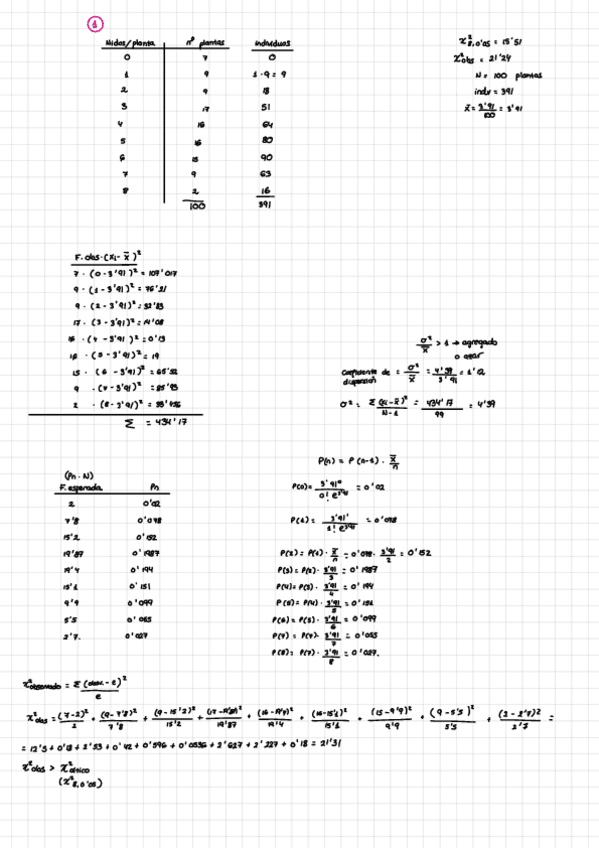 1
Nidos/planta nº plantas individuos
0 7 0
1 9 1·9 = 9
2 9 18
3 17 51
4 16 64
5 16 80
6 15 90
7 9 63
8 2 16
100 391
χ²8,0'05 = 15'51
χ²obs = 21'24
N = 100 plantas
indiv = 391
x̄ = 3'91/100 = 3'91
F. obs·(xi - x̄)²
7 · (0 - 3'91)² = 107'017
9 · (1 - 3'91)² = 76'21
9 · (2 - 3'91)² = 32'83
17 · (3 - 3'91)² = 14'08
16 · (4 - 3'91)² = 0'13
16 · (5 - 3'91)² = 19
15 · (6 - 3'91)² = 65'52
9 · (7 - 3'91)² = 85'93
2 · (8 - 3'91)² = 33'456
Σ = 434'17
σ²/x̄ > 1 → agregado
o azar
Coeficiente de dispersión = σ²/x̄ = 4'39/3'91 = 1'12
σ² = Σ (xi - x̄)²/N-1 = 434'17/99 = 4'39
(Pn · N)
F. esperada Pn
2 0'02
7'8 0'078
15'2 0'152
19'87 0'1987
19'4 0'194
15'1 0'151
9'9 0'099
5'5 0'055
2'7 0'027
P(n) = P(n-1) · x̄/n
P(0) = 3'91⁰/0! e^3'91 = 0'02
P(1) = 3'91¹/1! e^3'91 = 0'078
P(2) = P(1) · x̄/n = 0'078 · 3'91/2 = 0'152
P(3) = P(2) · 3'91/3 = 0'1987
P(4) = P(3) · 3'91/4 = 0'194
P(5) = P(4) · 3'91/5 = 0'151
P(6) = P(5) · 3'91/6 = 0'099
P(7) = P(7) · 3'91/7 = 0'055
P(8) = P(7) · 3'91/8 = 0'027.
χ²observado = Σ (obse - e)²/e
χ²obs = (7-2)²/2 + (9-7'8)²/7'8 + (9-15'2)²/15'2 + (17-19'87)²/19'87 + (16-19'4)²/19'4 + (16-15'1)²/15'1 + (15-9'9)²/9'9 + (9-5'5)²/5'5 + (2-2'7)²/2'7 =
= 12'5 + 0'18 + 2'53 + 0'42 + 0'596 + 0'0536 + 2'627 + 2'227 + 0'18 = 21'31
χ²obs > χ²crítico
(χ²8,0'05)